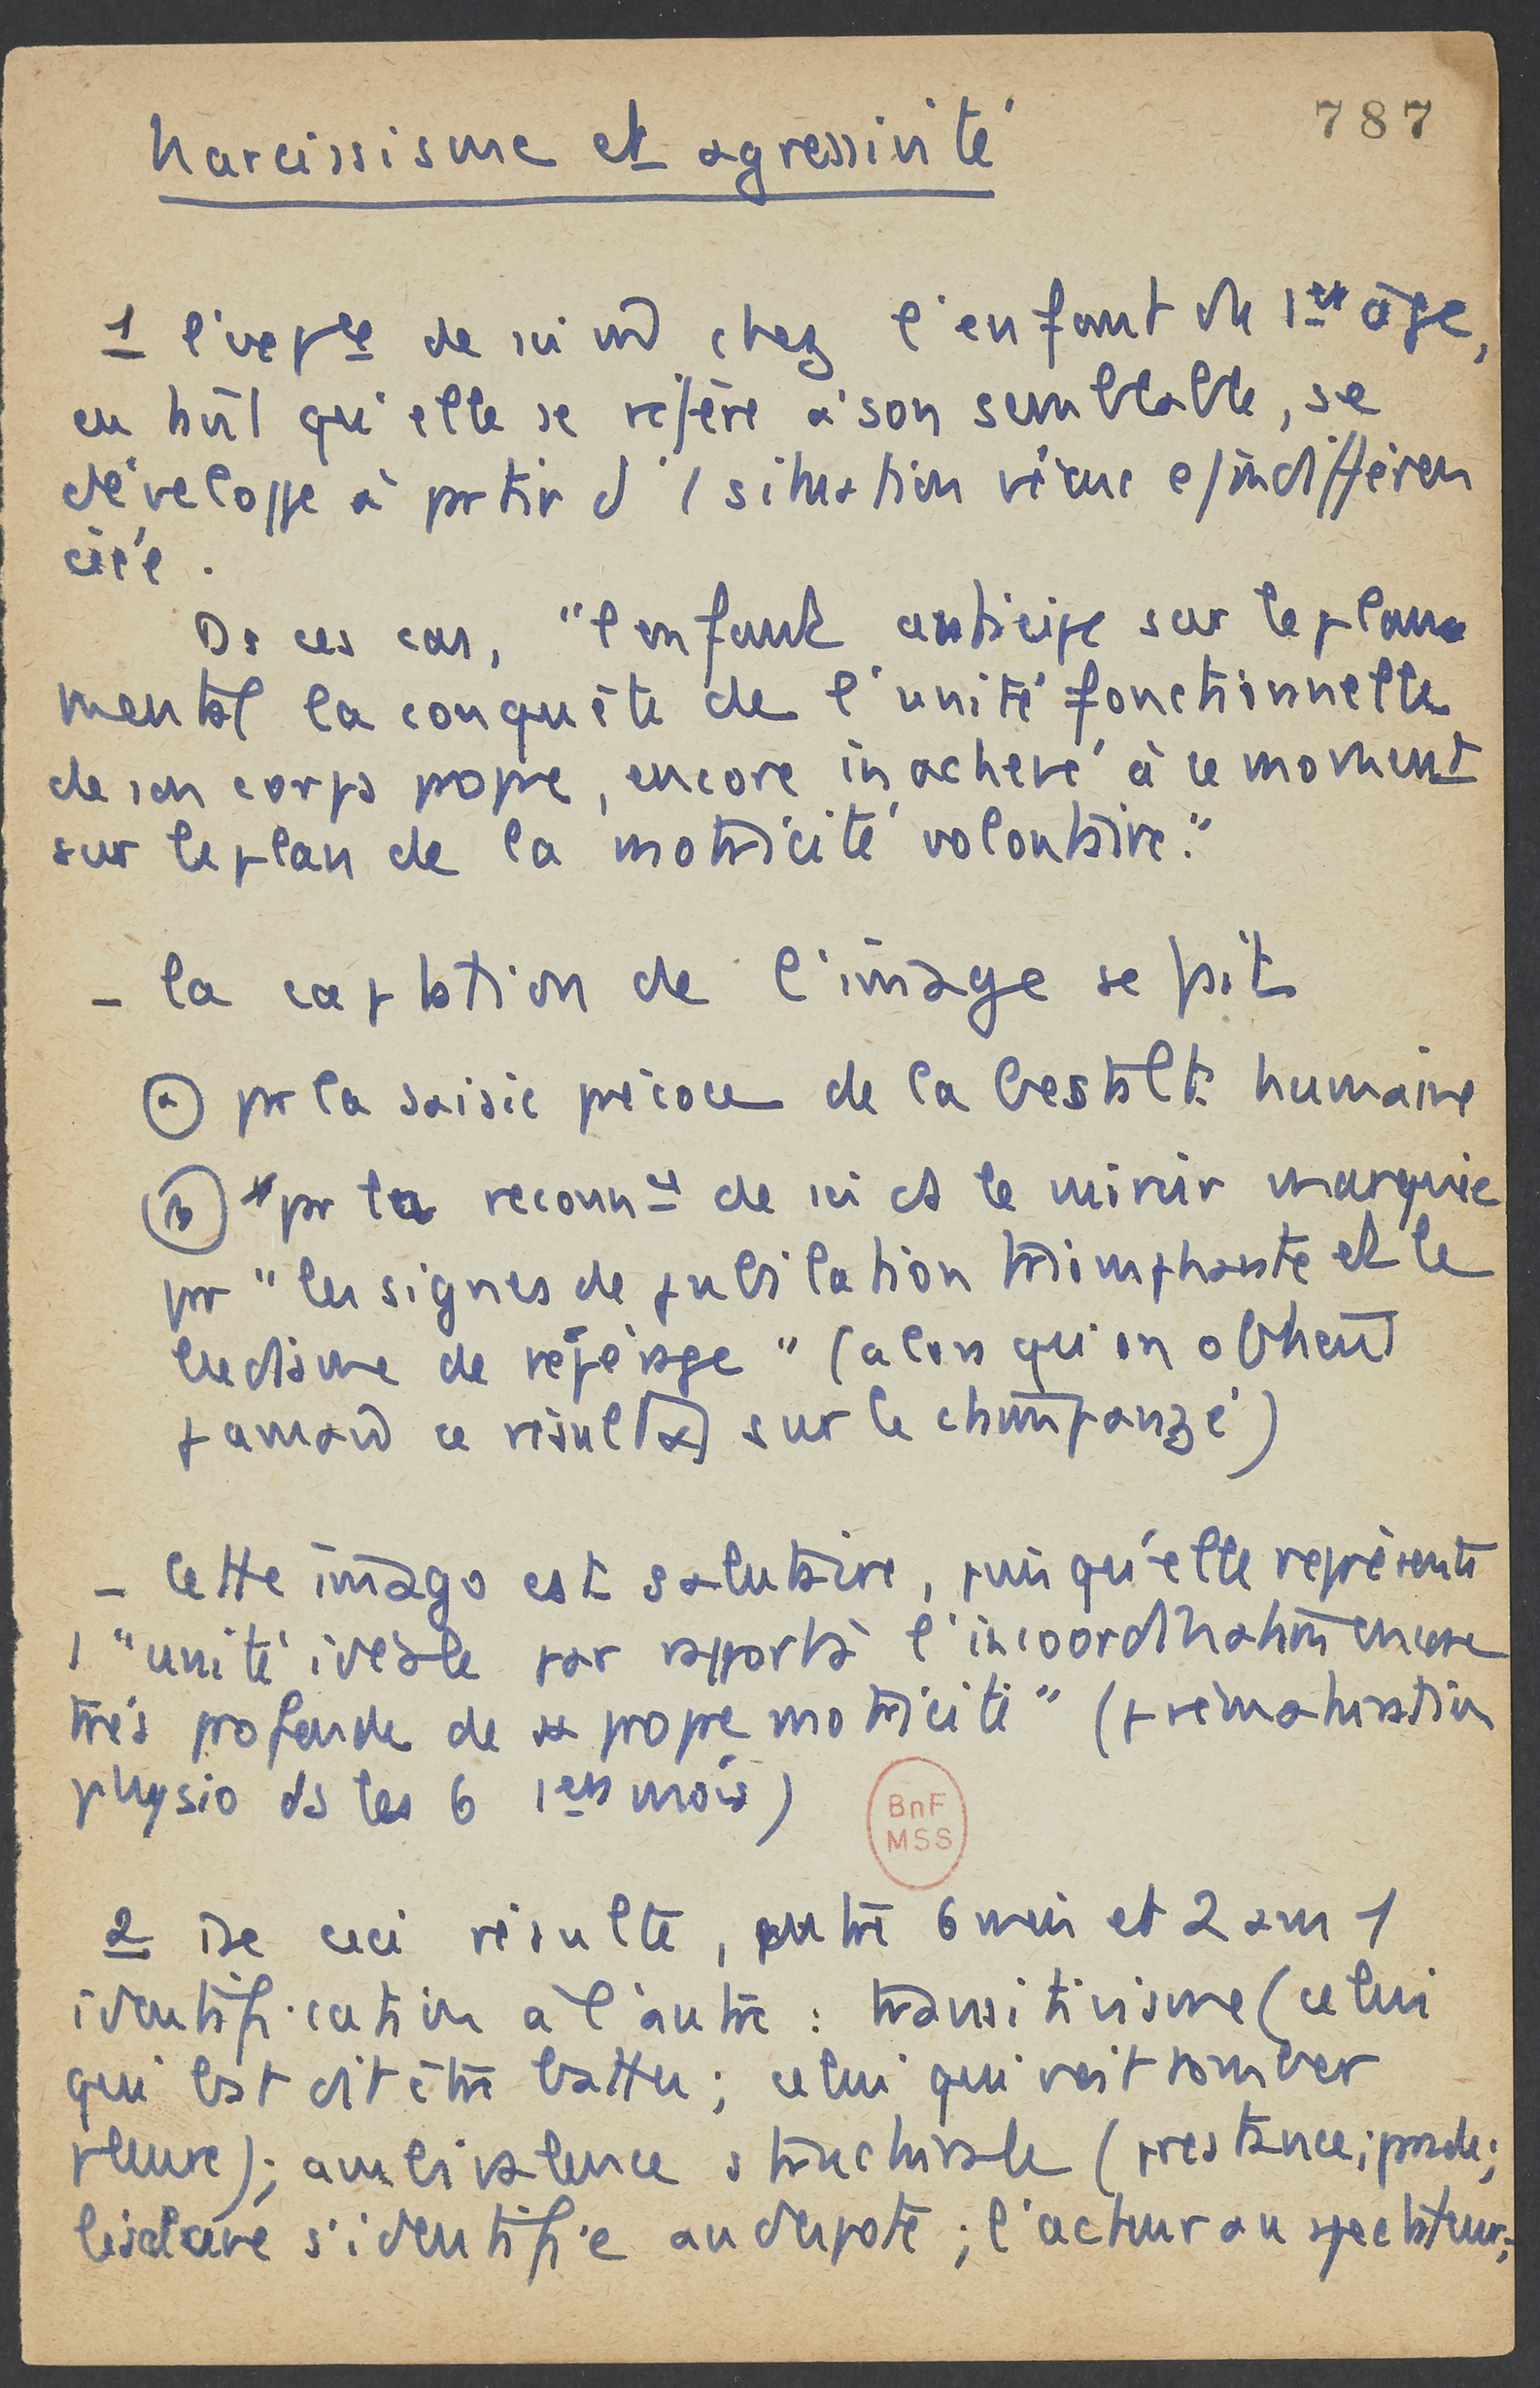 787
Narcissisme et agressivité
1 l'expce de soi chez l'enfant du 1er âge,
en tant qu'elle se réfère à son semblable, se
développe à partir d' 1 situation vécue c/ indifféren
ciée.
Ds ces cas, "l'enfant anticipe sur le plan
mental la conquête de l'unité fonctionnelle
de son corps propre, encore inachevé à ce moment
sur le plan de la motricité volontaire."
- la captation de l'image se fait
(a) par la saisie précoce de la Gestalt humaine
(b) par la reconn de soi ds le miroir marquée
par "les signes de jubilation triomphante et le
ludisme de repérage" (alors qu'on obtient
jamais ce résultat sur le chimpanzé)
- Cette imago est salutaire, puisqu'elle représente
1 "unité idéale par rapport à l'incoordination encore
très profonde de sa propre motricité" (prématuration
physio ds les 6 1ers mois)
BnF
MSS
2 De ceci résulte, entre 6 mois et 2 ans 1
identification à l'autre : transitivisme (celui
qui bat dit être battu ; celui qui voit tomber
pleure) ; ambivalence structurale (prestance ; parade ;
l'esclave s'identifie au despote ; l'acteur au spectateur ;